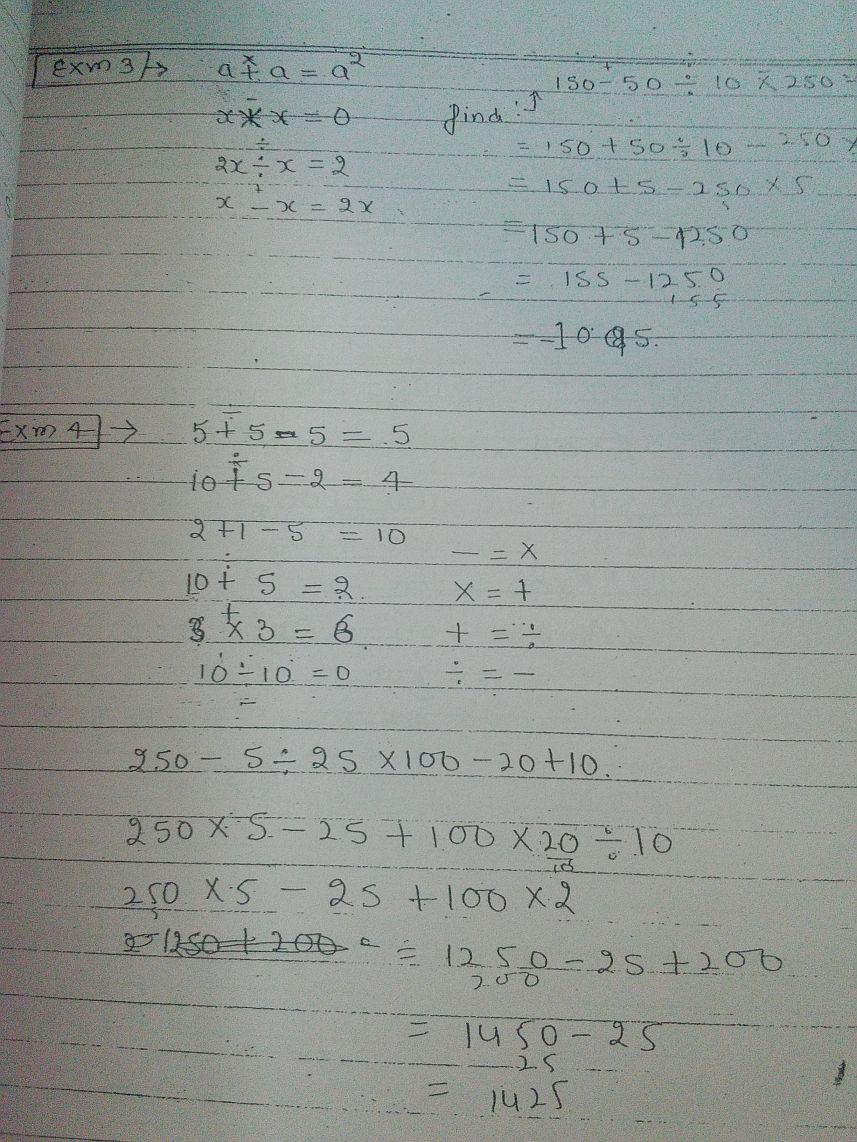 Exm 3 → a + a = a²
150 - 50 ÷ 10 × 250
x * x = 0 find :
= 150 + 50 ÷ 10 - 250 ×
2x ÷ x = 2
= 150 + 5 - 250 × 5
x - x = 2x
= 150 + 5 - 1250
= 155 - 1250
155
= -1095.
Exm 4 → 5 + 5 - 5 = 5
10 + 5 - 2 = 4
2 + 1 - 5 = 10
- = ×
10 + 5 = 2 × = +
3 × 3 = 6 + = ÷
10 ÷ 10 = 0 ÷ = -
250 - 5 ÷ 25 × 100 - 20 + 10.
250 × 5 - 25 + 100 × 20 ÷ 10
10
250 × 5 - 25 + 100 × 2
1250 + 200 = 1250 - 25 + 200
200
= 1450 - 25
25
= 1425